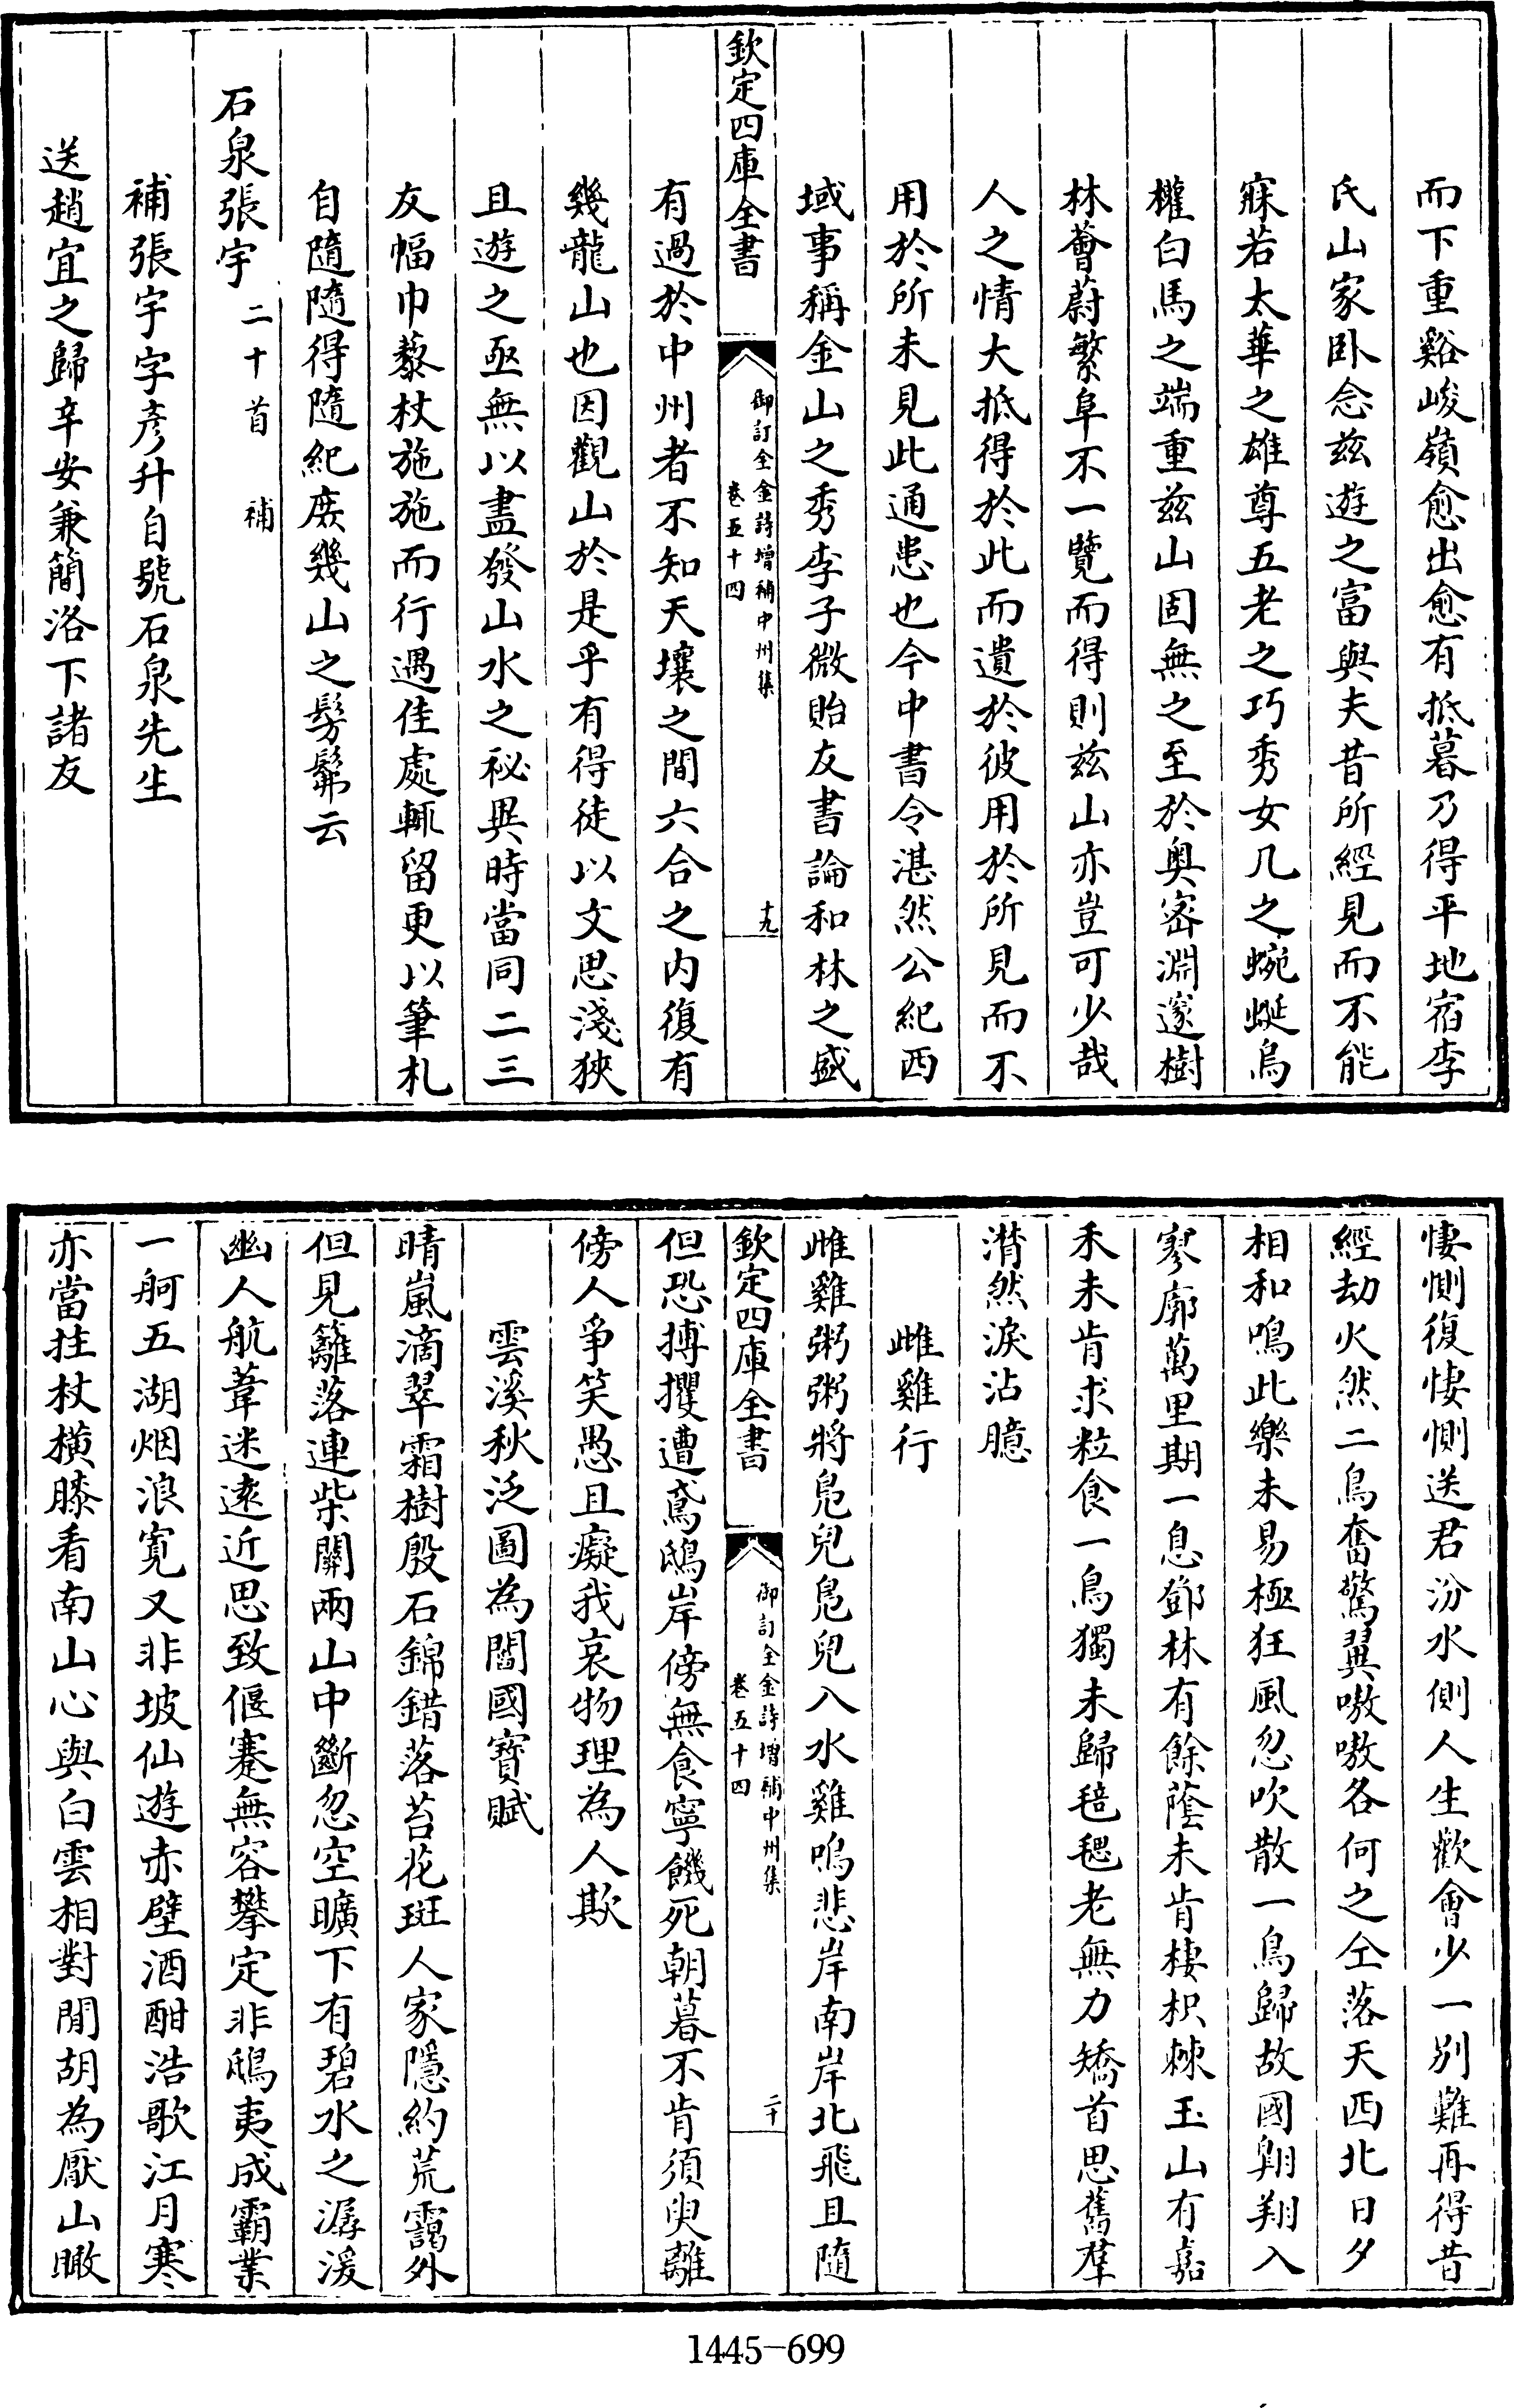 而下重谿峻嶺愈出愈有抵暮乃得平地宿李
氏山家卧念兹遊之富與夫昔所經見而不能
寐若太華之雄尊五老之巧秀女几之蜿蜒烏
權白馬之端重兹山固無之至於奥宻淵邃樹
林薈蔚繁阜不一覽而得則兹山亦豈可少哉
人之情大抵得於此而遺於彼用於所見而不
用於所未見此通患也今中書令湛然公紀西
域事稱金山之秀李子微貽友書論和林之盛
欽定四庫全書
御訂全金詩增補中州集
卷五十四
十九
有過於中州者不知天壤之間六合之内復有
幾龍山也因觀山於是乎有得徒以文思淺狹
且遊之亟無以盡發山水之祕異時當同二三
友幅巾藜杖施施而行遇佳處輒留更以筆札
自隨隨得隨紀庶幾山之髣髴云
石泉張宇 二十首 補
補張宇字彥升自號石泉先生
送趙宜之歸辛安兼簡洛下諸友
悽惻復悽惻送君汾水側人生歡會少一别難再得昔
經劫火然二鳥奮驚翼嗷嗷各何之仝落天西北日夕
相和鳴此樂未易極狂風忽吹散一鳥歸故國翺翔入
寥廓萬里期一息鄧林有餘蔭未肯棲枳棘玉山有嘉
禾未肯求粒食一鳥獨未歸毰毸老無力矯首思舊羣
潸然淚沾臆
雌雞行
雌雞粥粥將鳬兒鳬兒入水雞鳴悲岸南岸北飛且隨
欽定四庫全書
御訂全金詩增補中州集
卷五十四
二十
但恐搏攫遭鳶鴟岸傍無食寧饑死朝暮不肯須臾離
傍人爭笑愚且癡我哀物理為人欺
雲溪秋泛圖為閻國寶賦
晴嵐滴翠霜樹殷石錦錯落苔花斑人家隱約荒靄外
但見籬落連柴關兩山中斷忽空曠下有碧水之潺湲
幽人航葦迷遠近思致偃蹇無容攀定非鴟夷成霸業
一舸五湖烟浪寛又非坡仙遊赤壁酒酣浩歌江月寒
亦當拄杖横膝看南山心與白雲相對閒胡為厭山瞰
1445-699